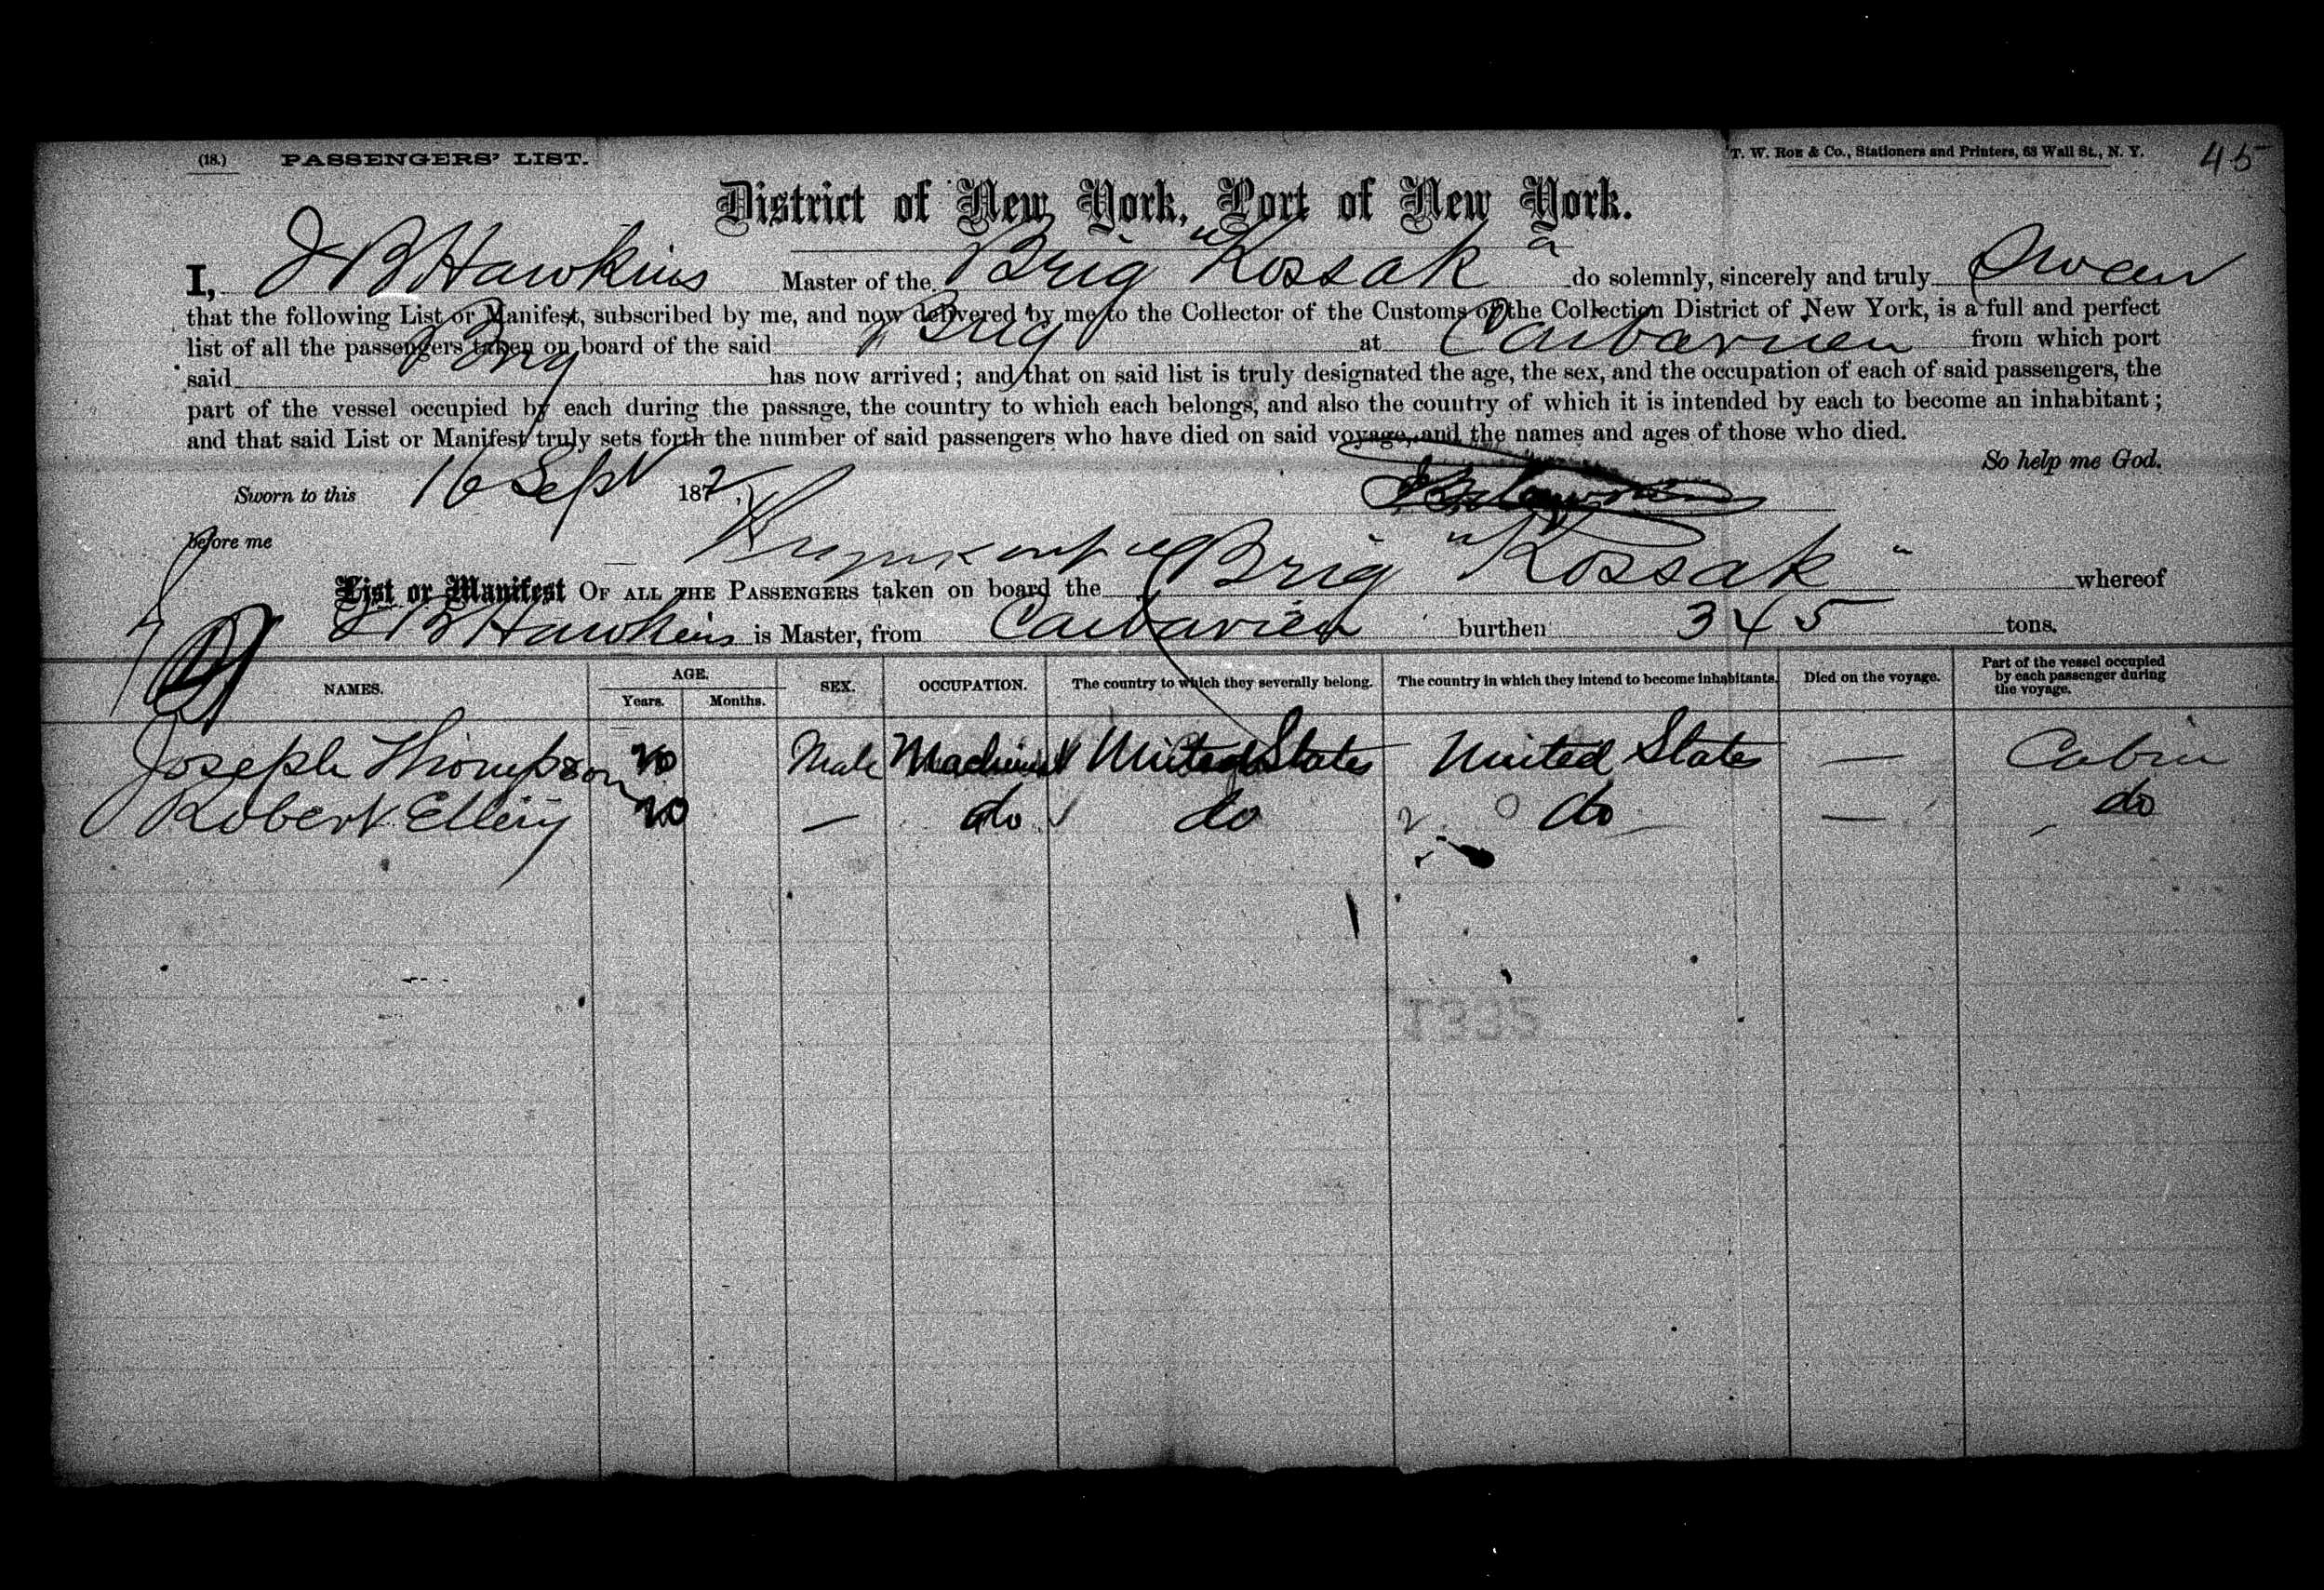 (18.) PASSENGERS' LIST. T. W. Roe & Co., Stationers and Printers, 63 Wall St., N. Y. 45
District of New York, Port of New York.
I, J B Hawkins Master of the Brig "Kossak" do solemnly, sincerely and truly Swear
that the following List or Manifest, subscribed by me, and now delivered by me to the Collector of the Customs of the Collection District of New York, is a full and perfect
list of all the passengers taken on board of the said Brig at Caibarien from which port
said Brig has now arrived; and that on said list is truly designated the age, the sex, and the occupation of each of said passengers, the
part of the vessel occupied by each during the passage, the country to which each belongs, and also the country of which it is intended by each to become an inhabitant;
and that said List or Manifest truly sets forth the number of said passengers who have died on said voyage, and the names and ages of those who died.
So help me God.
Sworn to this 16 Sept 1872,
before me
List or Manifest OF ALL THE PASSENGERS taken on board the Brig "Kossak" whereof
J B Hawkins is Master, from Caibarien burthen 345 tons.
NAMES. AGE. Years. Months. SEX. OCCUPATION. The country to which they severally belong. The country in which they intend to become inhabitants. Died on the voyage. Part of the vessel occupied by each passenger during the voyage.
Joseph Thompson 20 Male Machinist United States United States — Cabin
Robert Ellery 20 — do do do — do